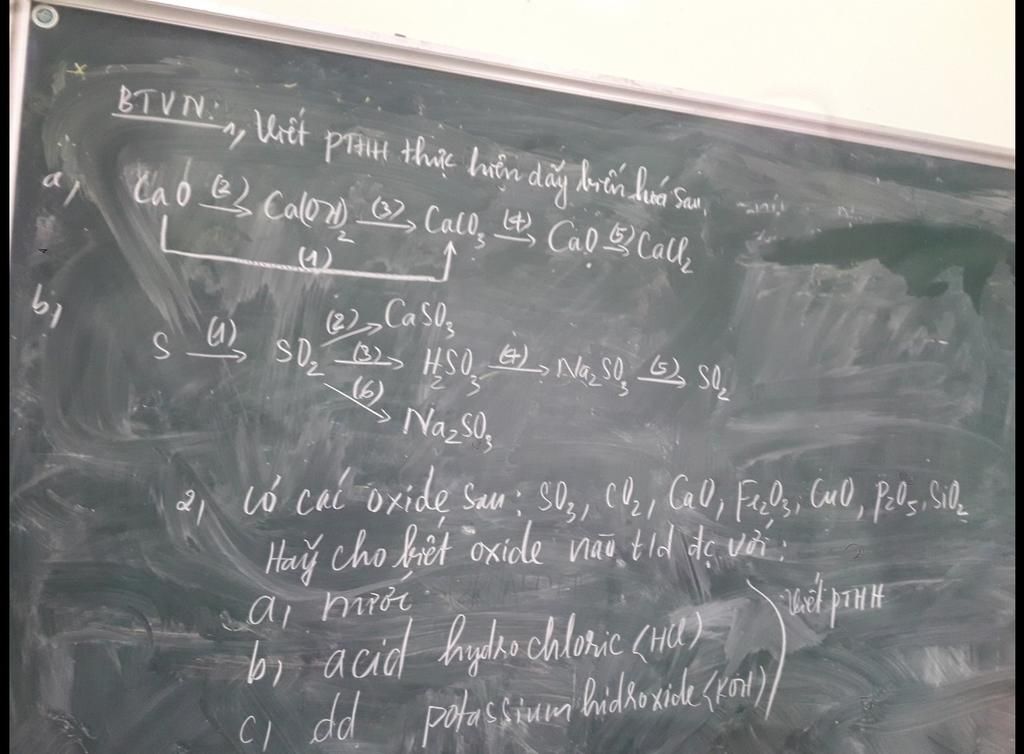 BTVN: 1, Viết PTHH thực hiện dãy biến hoá sau.
a, CaO (2)→ Ca(OH)₂ (3)→ CaCO₃ (4)→ CaO (5)→ CaCl₂
(1)
b,
(2)→ CaSO₃
S (1)→ SO₂ (3)→ H₂SO₃ (4)→ Na₂SO₃ (5)→ SO₂
(6)→ Na₂SO₃
2, Có các oxide sau: SO₃, CO₂, CaO, Fe₂O₃, CuO, P₂O₅, SiO₂
Haỹ cho biết oxide nào t/d đc với:
a, nước
b, acid hydrochloric (HCl)
c, dd potassium hidroxide (KOH)
Viết PTHH